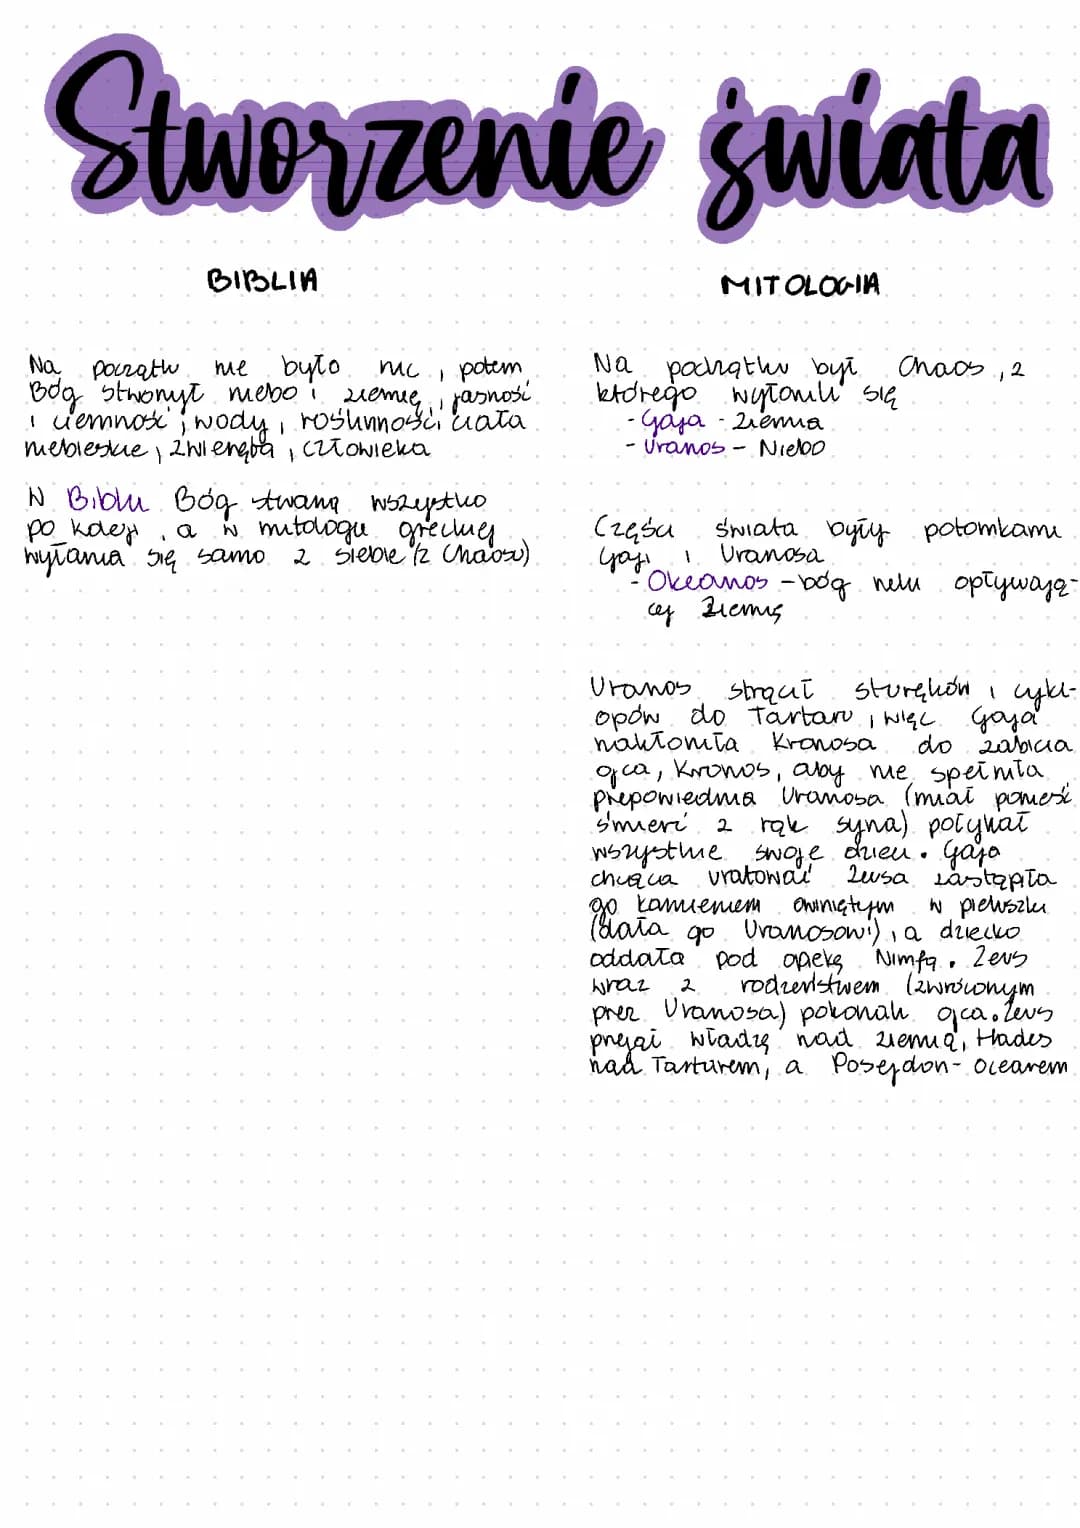 Stworzenie świata
BIBLIA
Na początku nie było nic, potem
Bóg stworzył niebo i ziemię, jasność
i ciemność, wody, roślinność, ciała
niebieskie, zwierzęta, człowieka
W Biblii Bóg tworzy wszystko
po kolei, a w mitologii greckiej
wyłania się samo z siebie (z Chaosu)
MITOLOGIA
Na początku był Chaos, z
którego wyłonili się
- Gaja - Ziemia
- Uranos - Niebo
Części świata były potomkami
Gai i Uranosa
- Okeanos - bóg rzeki opływają-
cej Ziemię
Uranos strącił sturękich i cykl-
opów do Tartaru, więc Gaja
nakłoniła Kronosa do zabicia
ojca, Kronos, aby nie spełniła
przepowiednia Uranosa (miał ponieść
śmierć z rąk syna) połykał
wszystkie swoje dzieci. Gaja
chcąca uratować Zeusa zastąpiła
go kamieniem owiniętym w pieluszki
(dała go Uranosowi), a dziecko
oddała pod opiekę Nimfą. Zeus
wraz z rodzeństwem (zwróconym
przez Uranosa) pokonali ojca. Zeus
przejął władzę nad ziemią, Hades
nad Tarturem, a Posejdon - Ocearem